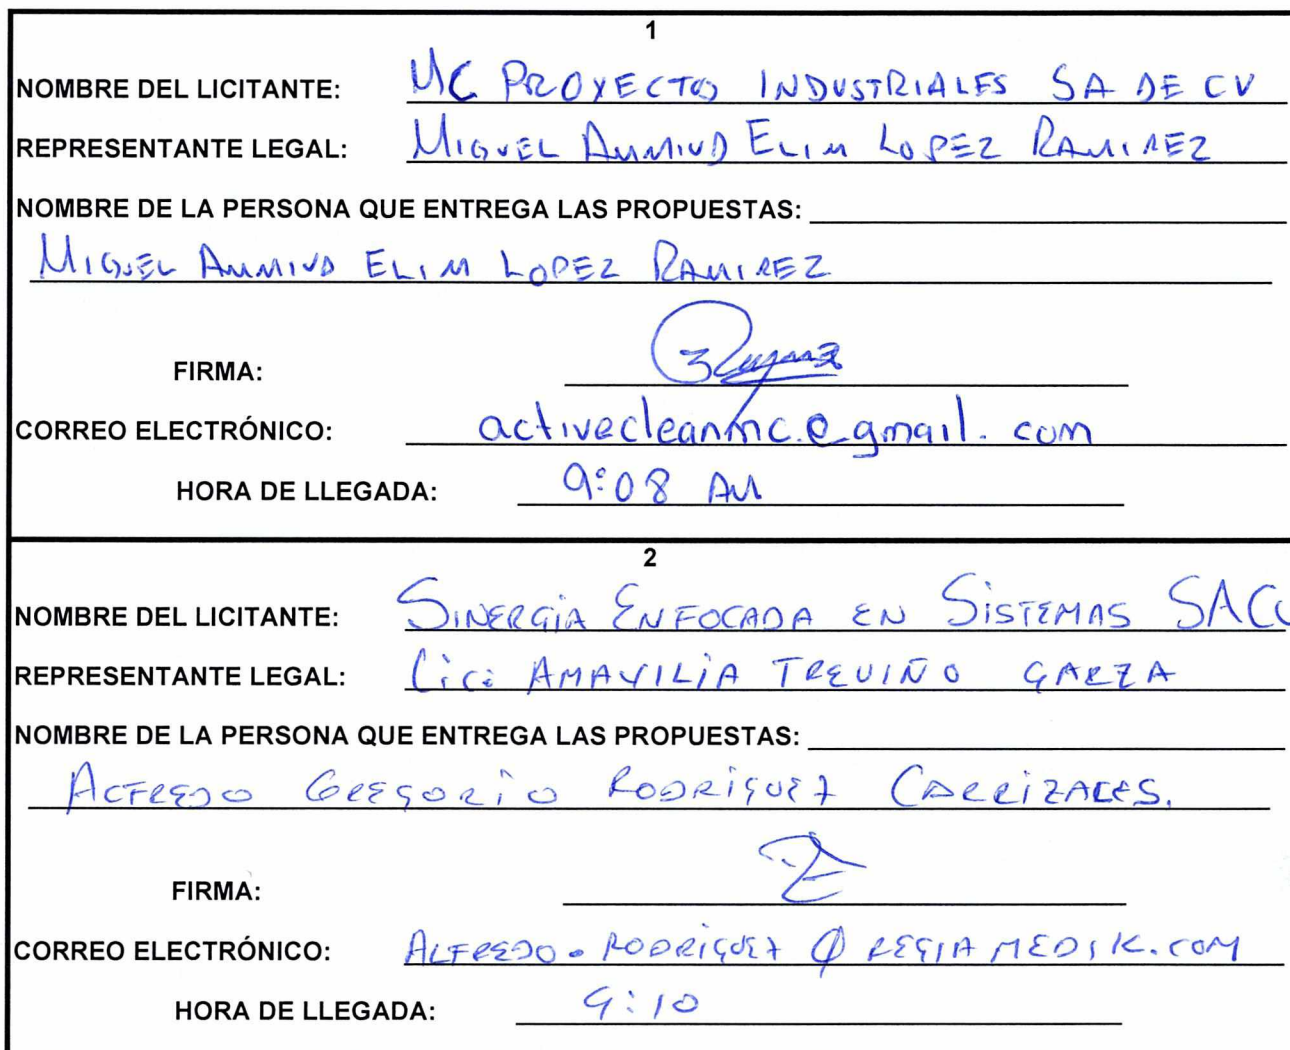 1
NOMBRE DEL LICITANTE: MC PROYECTOS INDUSTRIALES SA DE CV
REPRESENTANTE LEGAL: MIGUEL AMMIUD ELIM LOPEZ RAMIREZ
NOMBRE DE LA PERSONA QUE ENTREGA LAS PROPUESTAS:
MIGUEL AMMIUD ELIM LOPEZ RAMIREZ
FIRMA:
CORREO ELECTRÓNICO: activecleanmc.@gmail.com
HORA DE LLEGADA: 9:08 AM
2
NOMBRE DEL LICITANTE: SINERGIA ENFOCADA EN SISTEMAS
REPRESENTANTE LEGAL: AMAVILIA TREVIÑO GARZA
NOMBRE DE LA PERSONA QUE ENTREGA LAS PROPUESTAS:
ALFREDO GREGORIO RODRIGUEZ CARRIZALES.
FIRMA:
CORREO ELECTRÓNICO: ALFREDO.RODRIGUEZ@REGIAMEDIK.COM
HORA DE LLEGADA: 9:10